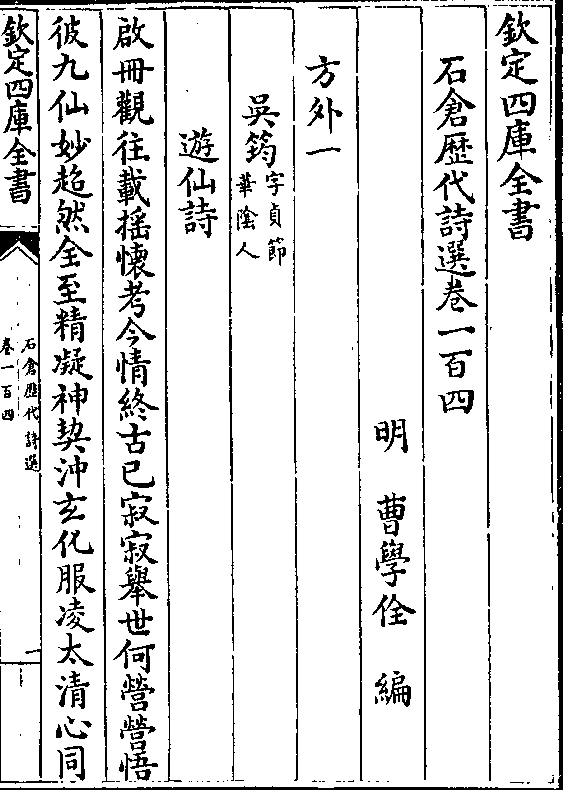 欽定四庫全書
石倉歴代詩選卷一百四
明　曹學佺　編
方外一
吳筠字貞節
華隂人
遊仙詩
啟冊觀往載揺懷考今情終古已寂寂舉世何營營悟
彼九仙妙超然全至精凝神契沖玄化服凌太清心同
欽定四庫全書
石倉歴代詩選
卷一百四
一